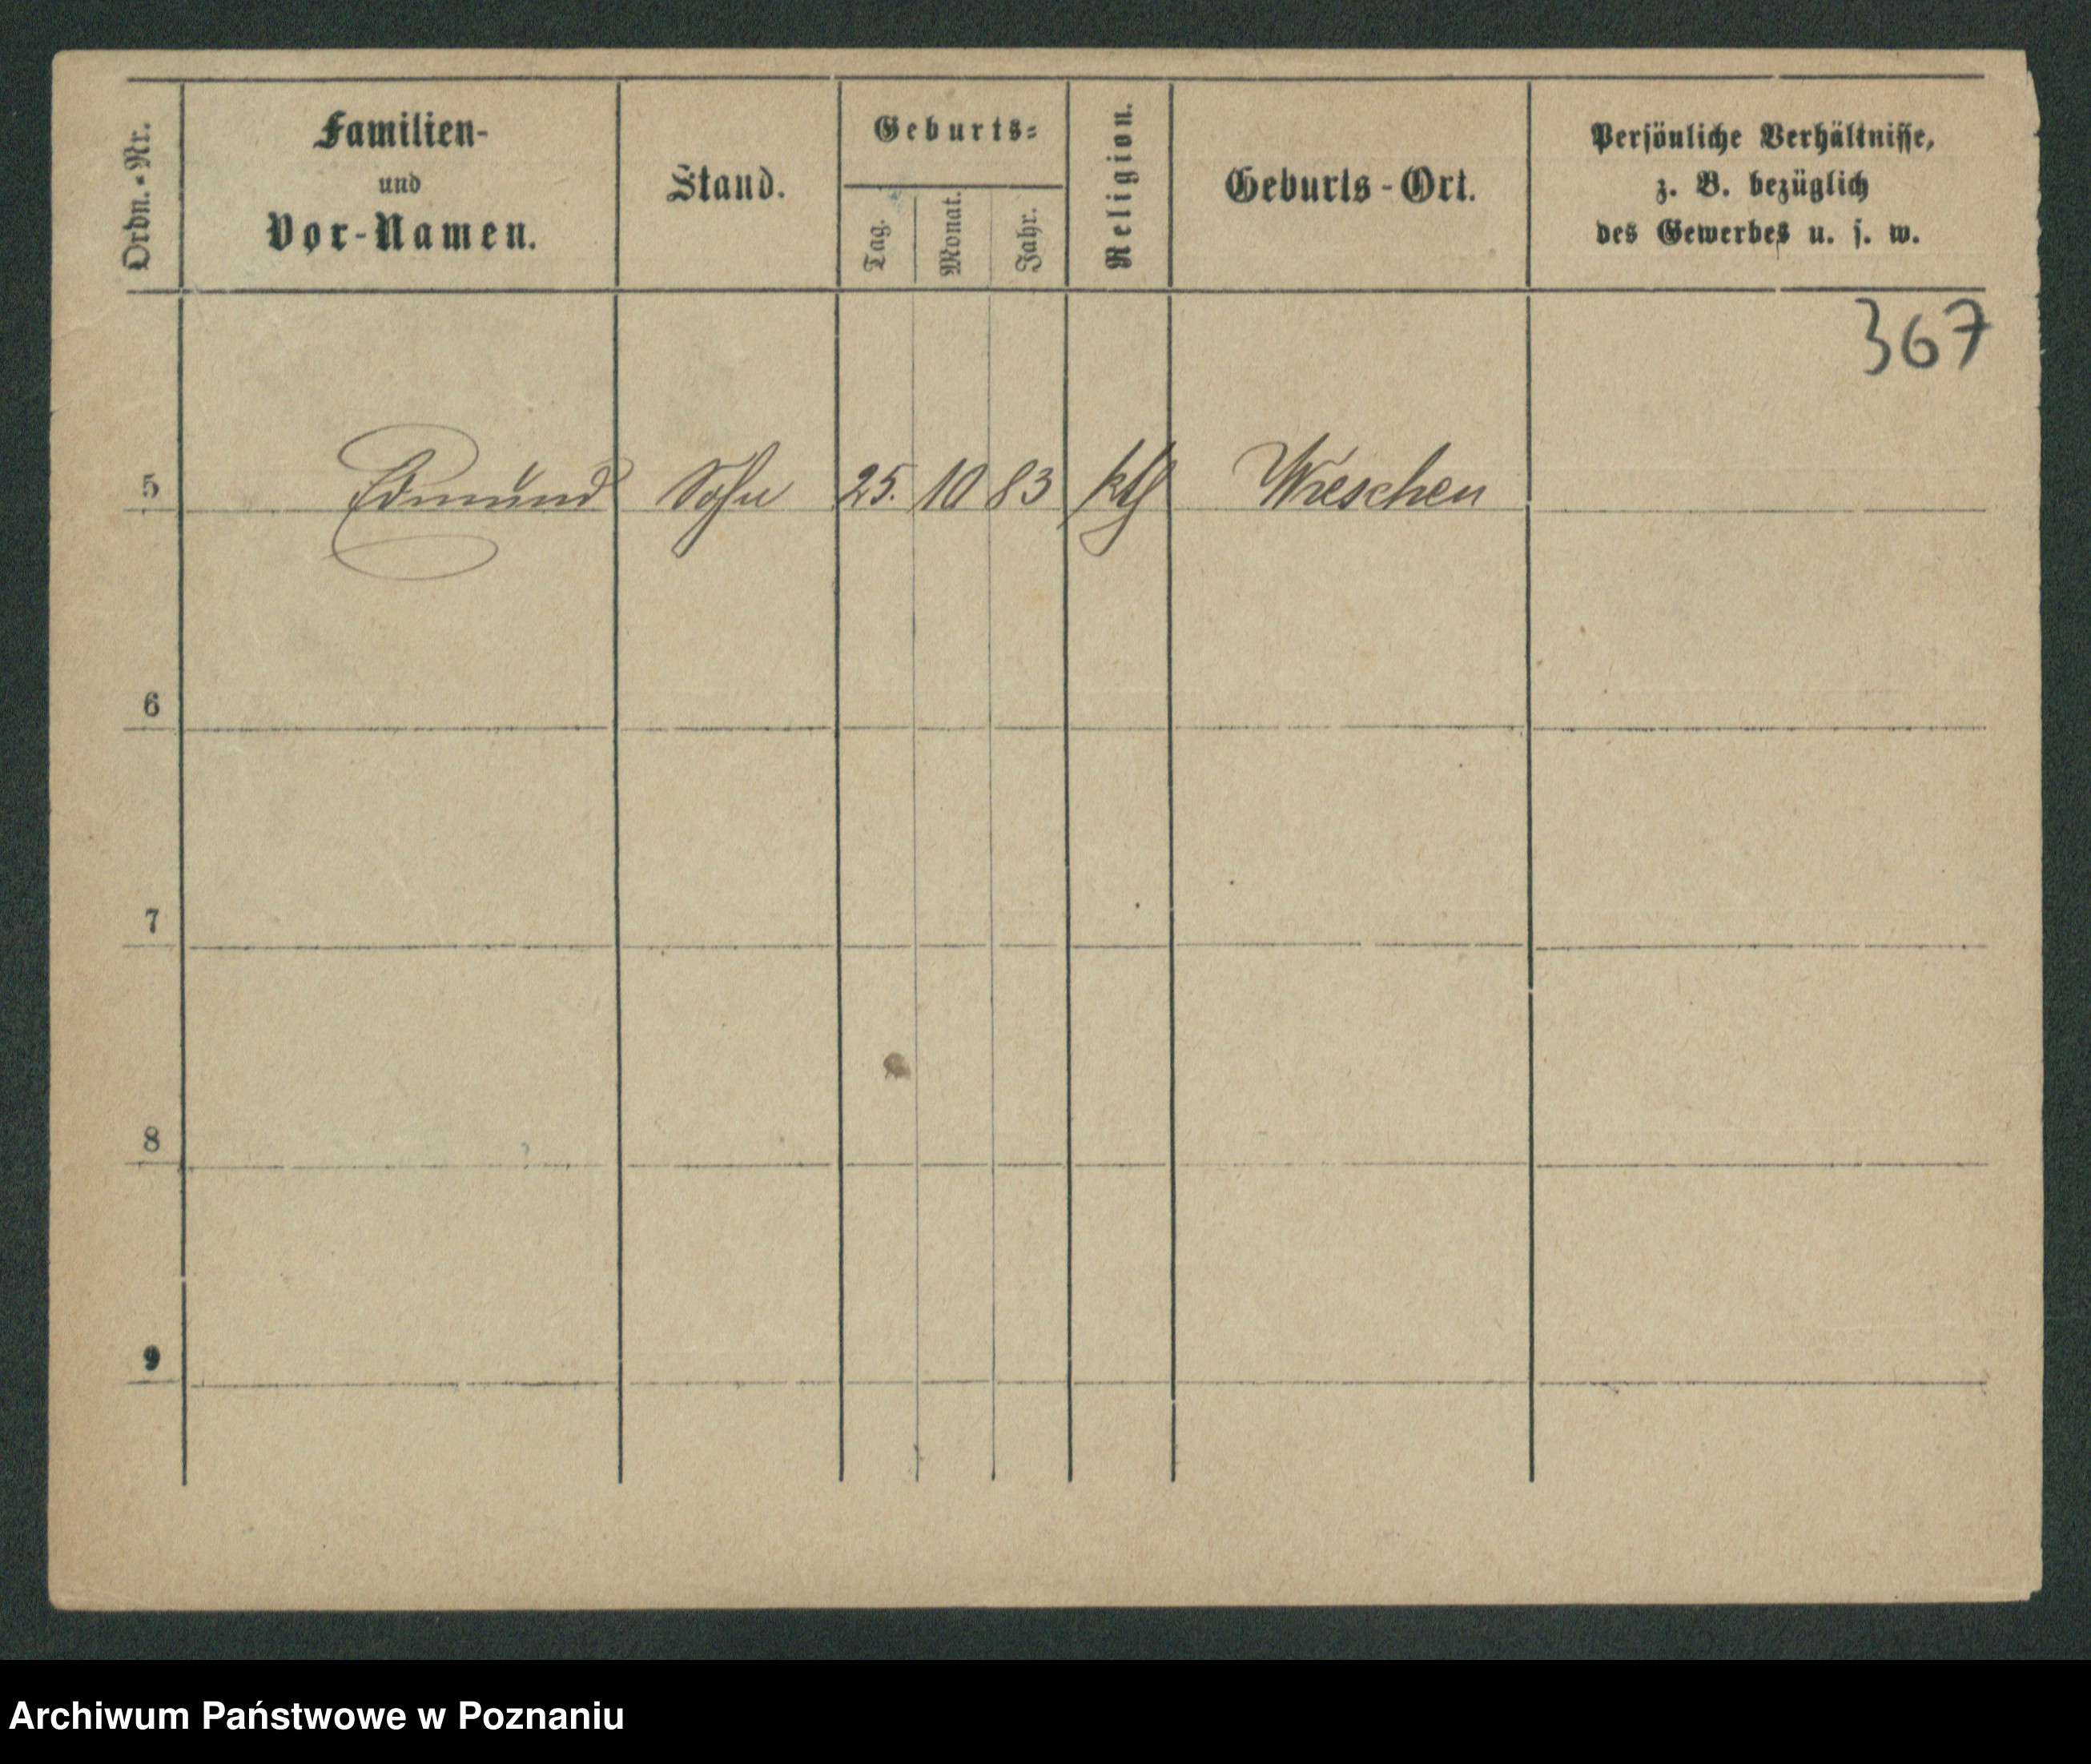 Ordn.-Nr.
Familien-
und
Vor-Namen.
Stand.
Geburts-
Tag.
Monat.
Jahr.
Religion.
Geburts-Ort.
Persönliche Verhältnisse,
z. B. bezüglich
des Gewerbes u. s. w.
367
5 Edmund Sohn 25. 10 83 kth Wreschen
6
7
8
9
Archiwum Państwowe w Poznaniu